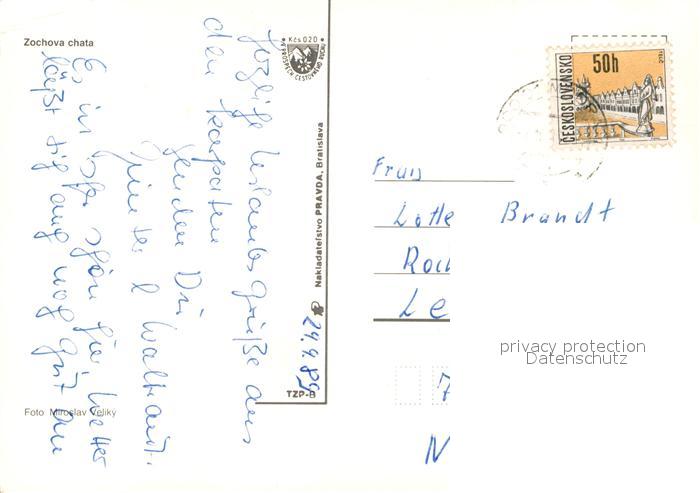 Zochova chata
Kčs 0 20
Nakladateľstvo PRAVDA, Bratislava
TZP-B
Foto Miroslav Veliky
24.4.89
Herzliche Urlaubsgrüße aus
den Karpaten
senden Dir
Günter & Waltraud.
Es ist sehr schön hier Wetter
läßt sich auch noch gut an
ČESKOSLOVENSKO
50h
TELČ
Frau
Lotte Brandt
Roc
Le
7
N
privacy protection
Datenschutz